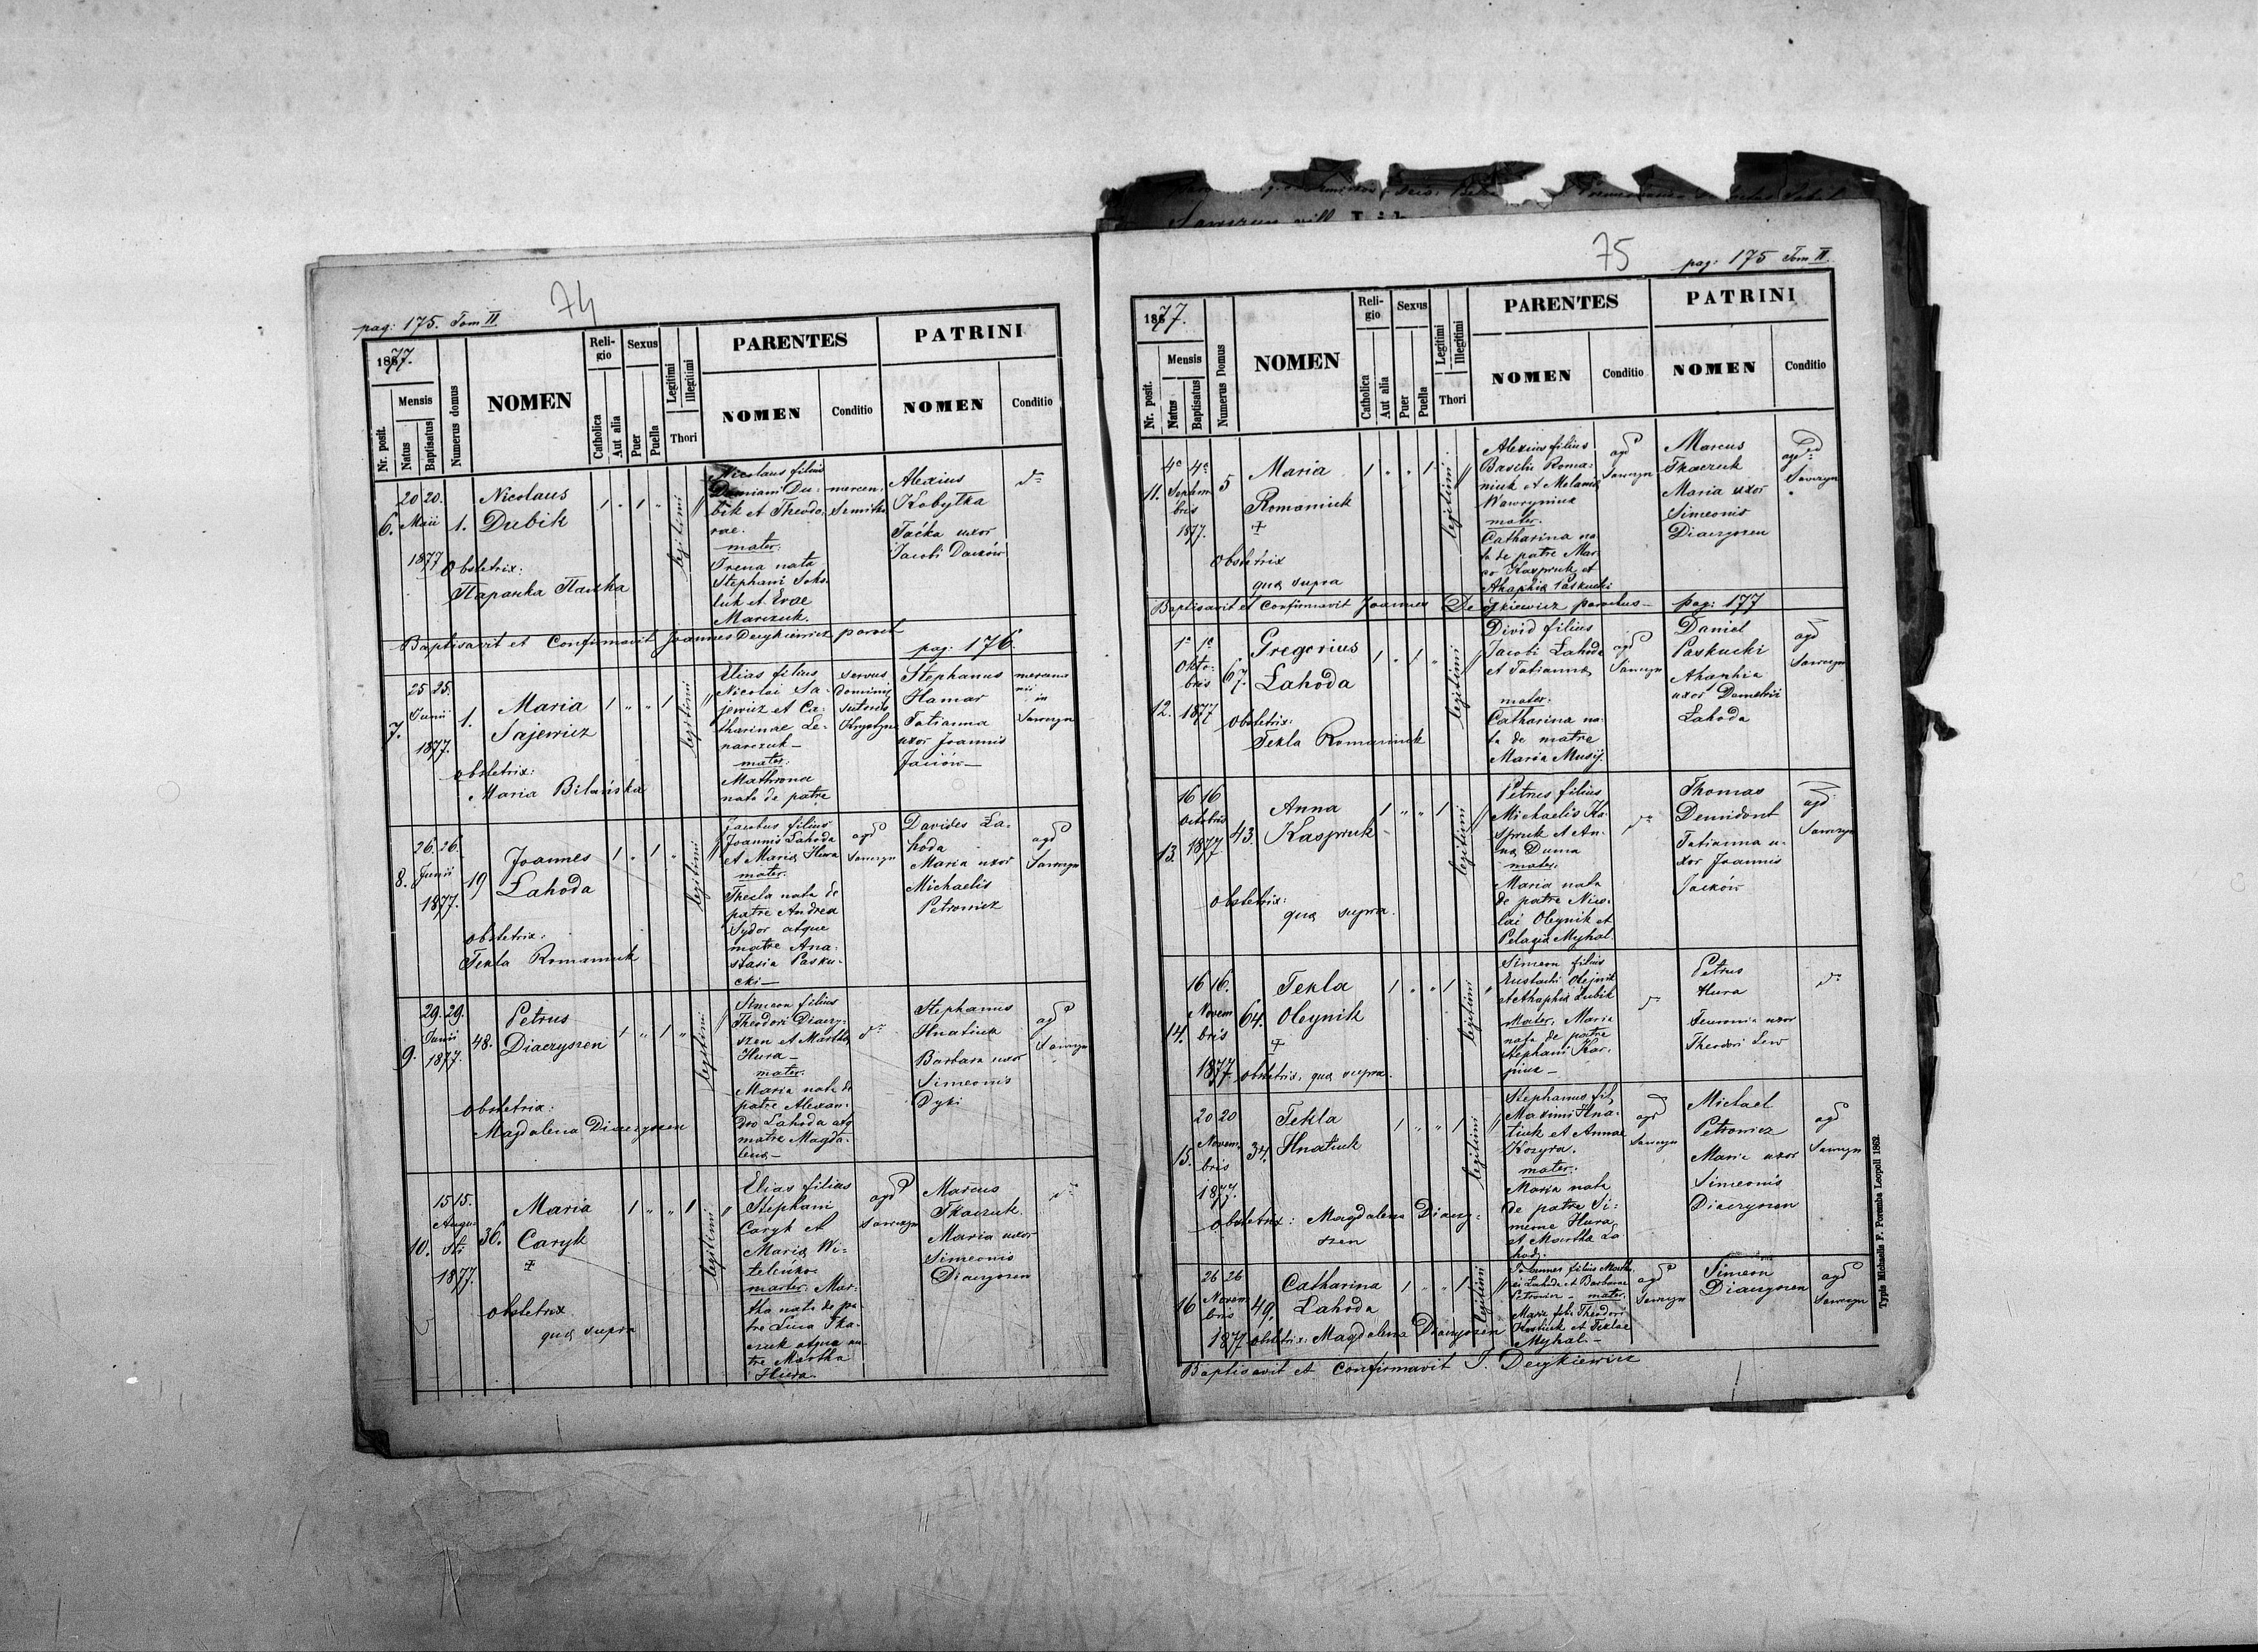 74
pag: 175. Tom II.
1877.
Nr. posit.
Mensis
Natus
Baptisatus
Numerus domus
NOMEN
Religio
Catholica
Aut alia
Sexus
Puer
Puella
Legitimi
Illegitimi
Thori
PARENTES
NOMEN
Conditio
PATRINI
NOMEN
Conditio
6.
20 20.
Maii
1877
1.
Nicolaus
Dubik
Obstetrix:
1 " 1 "
legitimi
Nicolaus filius
Damiani Du-
bik et Theodo-
rae.
mater:
Irena nata
Stephani
et Evae
Marczuk.
mercen.
Alexius
Kobyłka
uxor
Jacobi
d-o
Baptisavit et Confirmavit Joannes Decykiewicz paroch
pag: 176.
7.
25 25.
Junii
1877.
1.
Maria
Sajewicz
obstetrix:
Maria Bilańska
1 " " 1
legitimi
Elias filius
Nicolai Sa-
jewicz et Ca-
tharinae Le-
narczuk—
mater:
Mathrona
nata de patre
servus
Stephanus
Hamar
Tatianna
uxor Joannis
in
Sawczyn
8.
26. 26.
Junii
1877.
19
Joannes
Łahoda
obstetrix:
Tekla Romaniuk
1 " 1 "
legitimi
Jacobus filius
Joannis Łahoda
et Maria Hura
mater.
Thecla nata de
patre Andrea
Sydor atque
matre Ana-
stasia Pasku-
cki—
agr
Sawczyn
Davides Ła-
hoda
Maria uxor
Michaelis
Petrowicz
agr
Sawczyn
9.
29. 29.
Junii
1877.
48.
Petrus
Diaczyszen
obstetrix:
Magdalena Diaczyszen
1 " 1 "
legitimi
Simeon filius
Theodori Diaczy-
szen et Martha
Hura—
mater.
Maria nata de
patre Alexan-
dro Łahoda atq
matre Magda-
lena—
d-o
Stephanus
Hnatiuk
Barbara uxor
Simeonis
Dyki
agr
Sawczyn
10.
15 15.
Augu-
sti
1877.
36.
Maria
Caryk
+
obstetrix
qua supra
1 " " 1
legitimi
Elias filius
Stephani
Caryk et
Maria Wi-
teleńko.
mater: Mar-
tha nata de pa-
tre Luca Tka-
czuk atque ma-
tre Martha
Hura.
agr
Sawczyn
Marcus
Tkaczuk.
Maria uxor
Simeonis
Diaczyszen
d-o
75
pag: 175 Tom II.
1877.
Nr. posit.
Mensis
Natus
Baptisatus
Numerus Domus
NOMEN
Religio
Catholica
Aut alia
Sexus
Puer
Puella
Legitimi
Illegitimi
Thori
PARENTES
NOMEN
Conditio
PATRINI
NOMEN
Conditio
11.
4a 4a
Septem-
bris
1877.
5
Maria
Romaniuk
+
Obstetrix
qua supra
1 " " 1
legitimi
Alexius filius
Basilii Roma-
niuk et Melania
Wawryniuk
mater.
Catharina na-
ta de patre Mar-
co Kaspruk et
Ahaphia Paskucki
agr
Sawczyn
Marcus
Tkaczuk
Maria uxor
Simeonis
Diaczyszen
Sawczyn
Baptisavit et Confirmavit Joannes Decykiewicz parochus—
pag: 177
12.
1a 1a
Okto-
bris
1877
67.
Gregorius
Łahoda
obstetrix:
Tekla Romaniuk
1 " 1 "
legitimi
David filius
Jacobi Łahoda
et Tatianna
mater.
Catharina na-
ta de matre
Maria Musij.
agr
Sawczyn
Daniel
Paskucki
Ahaphia
uxor Demetrii
Łahoda
agr
Sawczyn
13.
16 16
Octobris
1877
43.
Anna
Kaspruk
obstetrix:
qua supra.
1 " " 1
legitimi
Petrus filius
Michaelis Ka-
spruk et An-
na Duma
mater.
Maria nata
de patre Nico-
lai Oleynik et
Pelagia Myhal.
d-o
Thomas
Demidont
Tatianna u-
xor Joannis
Jacków
agr
Sawczyn
14.
16 16.
Novem-
bris
1877.
64.
Tekla
Oleynik
+
obstetrix, qua supra.
1 " " 1
legitimi
Simeon filius
Eustachi Olejnik
et Ahaphia Dubik
Mater. Maria
nata de patre
Stephani Kar-
piuk—
d-o
Petrus
Hura
Feuronia uxor
Theodori Lew
d-o
15.
20 20
Novem-
bris
1877.
34.
Tekla
Hnatiuk
obstetrix: Magdalena Diaczy-
szen
1 " " 1
legitimi
Stephanus fil.
Maximi Hna-
tiuk et Annae
Kozyra.
mater:
Maria nata
de patre Si-
meone Hura
et Martha Ła-
hod.
agr
Sawczyn
Michael
Petrowicz
Maria uxor
Simeonis
Diaczyszen
agr
Sawczyn
16
26 26
Novem-
bris
1877.
49.
Catharina
Łahoda
obstetrix: Magdalena Diaczyszen
1 " " 1
legitimi
Joannes filius Matth-
ei Łahoda et Barbarae
Petrowicz - mater.
Maria fil. Theodori
Kostiuk et Teklae
Myhal.—
agr
Sawczyn
Simeon
Diaczyszen
agr
Sawczyn
Baptisavit et Confirmavit J. Decykiewicz
Typis Michaelis F. Poremba Leopoli 1862.